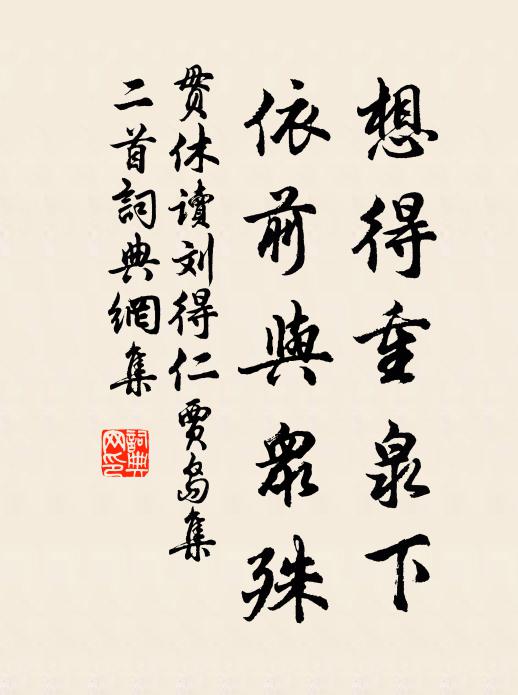 想得重泉下
依前與衆殊
贯休读刘得仁贾岛集
二首詞典網集
詞典
网印